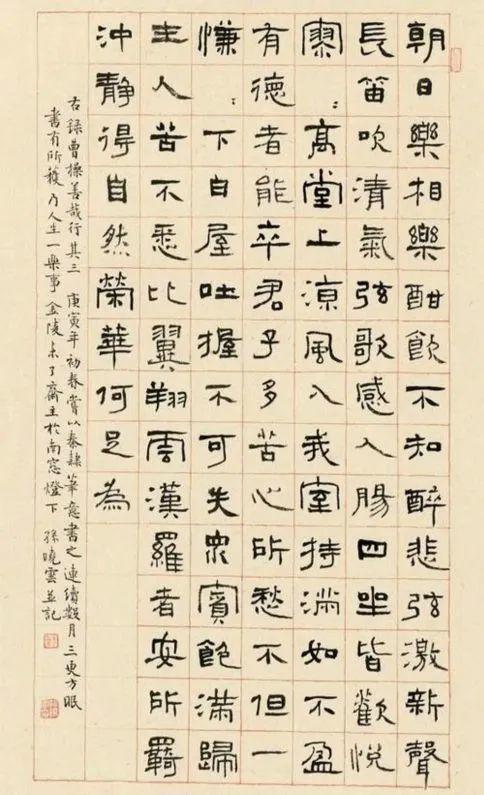 朝日樂相樂酣飲不知醉悲弦激新聲
長笛吹清氣弦歌感人腸四坐皆歡悅
寥〻高堂上涼風入我室持滿如不盈
有德者能卒君子多苦心所愁不但一
慊〻下白屋吐握不可失眾賓飽滿歸
主人苦不悉比翼翔雲漢羅者安所羈
沖靜得自然榮華何足為
右錄曹操善哉行其三 庚寅年初春嘗以秦隸筆意書之連續數月三更方眠
書有所獲乃人生一樂事金陵未了齋主於南窓燈下 孫曉雲並記